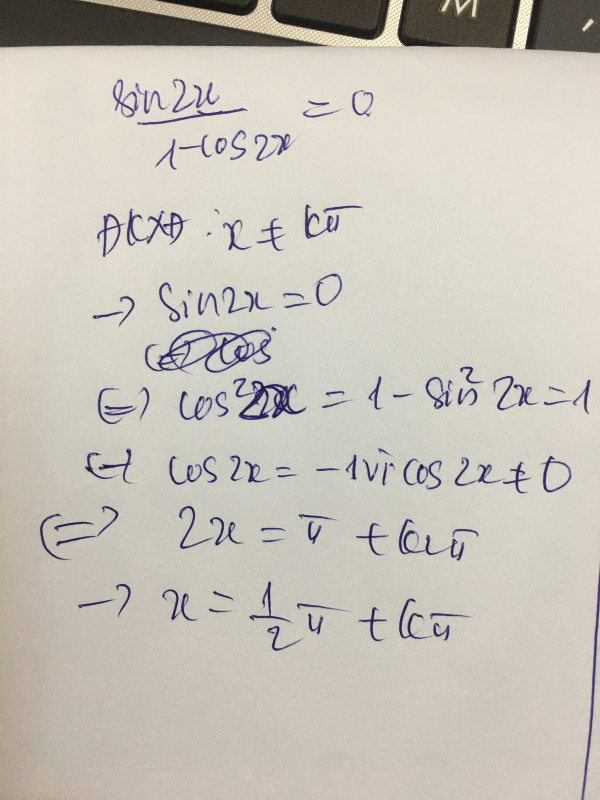 M
sin2x
1-cos2x
= 0
ĐKXĐ : x ≠ kπ
→ sin2x = 0
⇔ cos²2x = 1 - sin²2x = 1
⇔ cos2x = -1 vì cos2x ≠ 0
⇔ 2x = π + k2π
→ x = 1/2 π + kπ